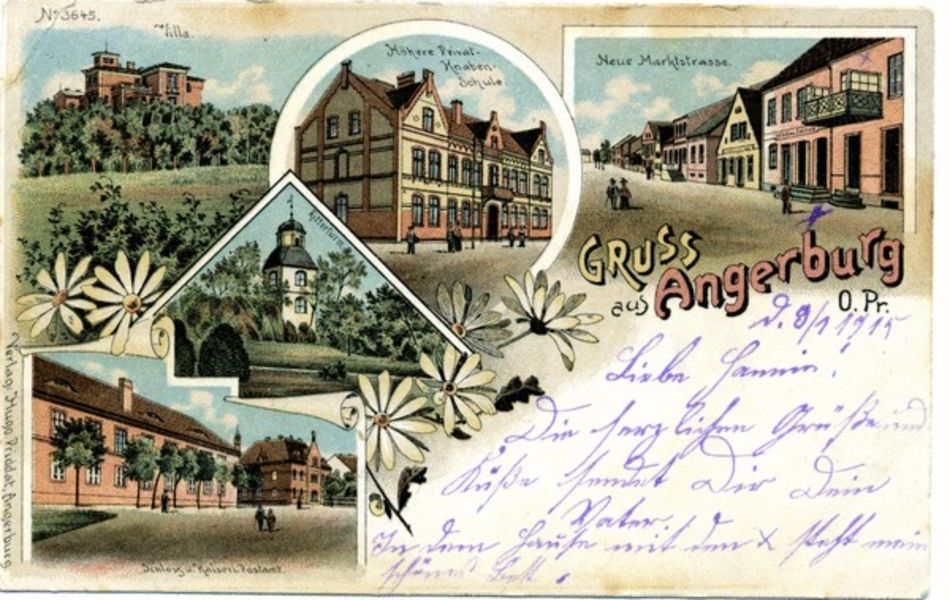 No 3645.
Villa.
Höhere Privat-
Knaben-
Schule
Neue Marktstrasse.
Ritterturm
GRUSS
aus Angerburg
O. Pr.
d. 8/1 1915
Liebe
Die herzlichen Grüße und
Küße sendet Dir Dein
Vater.
In dem Hause mit den x steht mein
schönes Bett.
Schloss u. Kaiserl. Postamt.
Verlag Hugo Priddat, Angerburg